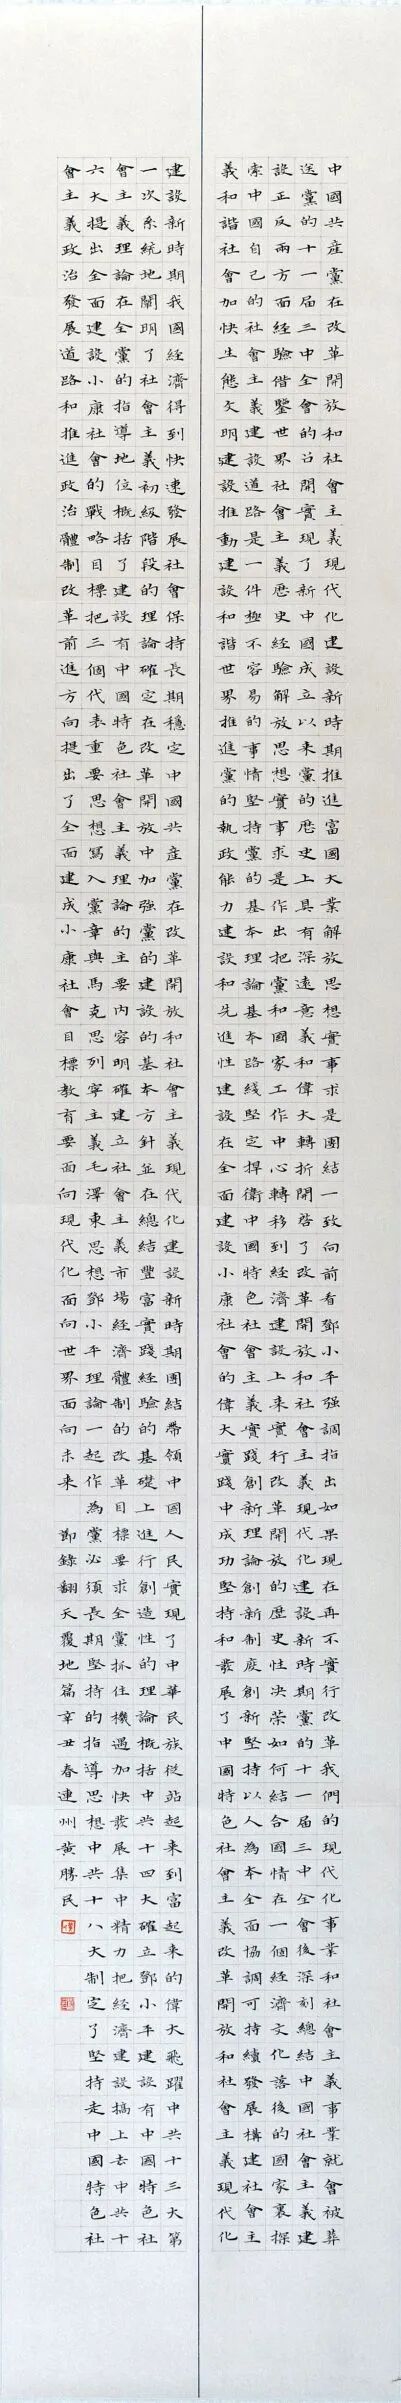 中國共產黨在改革開放和社會主義現代化建設新時期推進富國大業解放思想實事求是團結一致向前看鄧小平強調指出如果現在再不實行改革我們的現代化事業和社會主義事業就會被葬
送黨的十一届三中全會的召開實現了新中國成立以來黨的歷史上具有深遠意義和偉大轉折開啓了改革開放和社會主義現代化建設新時期黨的十一届三中全會後深刻總結中國社會主義建
設正反兩方面經驗借鑒世界社會主義歷史經驗解放思想實事求是作出把黨和國家工作中心轉移到經濟建設上來實行改革開放的歷史性決策如何結合國情在一個經濟文化落後的國家裏探
索中國自己的社會主義建設道路是一件極不容易的事情堅持黨的基本理論基本路綫堅定捍衛中國特色社會主義實踐創新理論創新制度創新堅持以人為本全面協調可持續發展構建社會主
義和諧社會加快生態文明建設推動建設和諧世界推進黨的執政能力建設和先進性建設在全面建設小康社會的偉大實踐中成功堅持和發展了中國特色社會主義改革開放和社會主義現代化
建設新時期我國經濟得到快速發展社會保持長期穩定中國共產黨在改革開放和社會主義現代化建設新時期團結帶領中國人民實現了中華民族從站起來到富起來的偉大飛躍中共十三大第
一次系統地闡明了社會主義初級階段的理論確定在改革開放中加強黨的建設的基本方針並在總結豐富實踐經驗的基礎上進行創造性的理論概括中共十四大確立鄧小平建設有中國特色社
會主義理論在全黨的指導地位概括了建設有中國特色社會主義理論的主要內容明確建立社會主義市場經濟體制的改革目標要求全黨抓住機遇加快發展集中精力把經濟建設搞上去中共十
六大提出全面建設小康社會的戰略目標把三個代表重要思想寫入黨章與馬克思列寧主義毛澤東思想鄧小平理論一起作為黨必須長期堅持的指導思想中共十八大制定了堅持走中國特色社
會主義政治發展道路和推進政治體制改革前進方向提出了全面建成小康社會目標教育要面向現代化面向世界面向未來 節錄翻天覆地篇辛丑春連州黃勝民